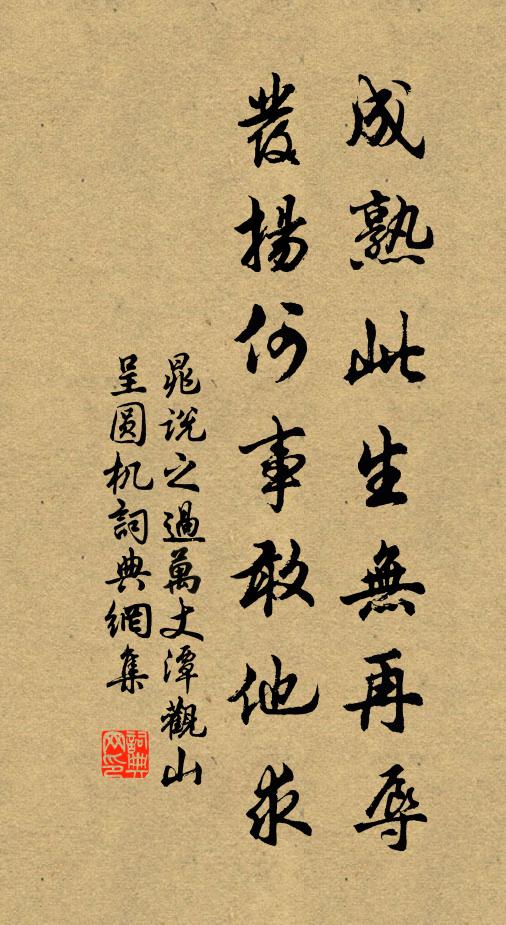 成熟此生無再辱
發揚何事敢他求
晁說之過萬丈潭觀山
呈圆机詞典網集
詞典网印